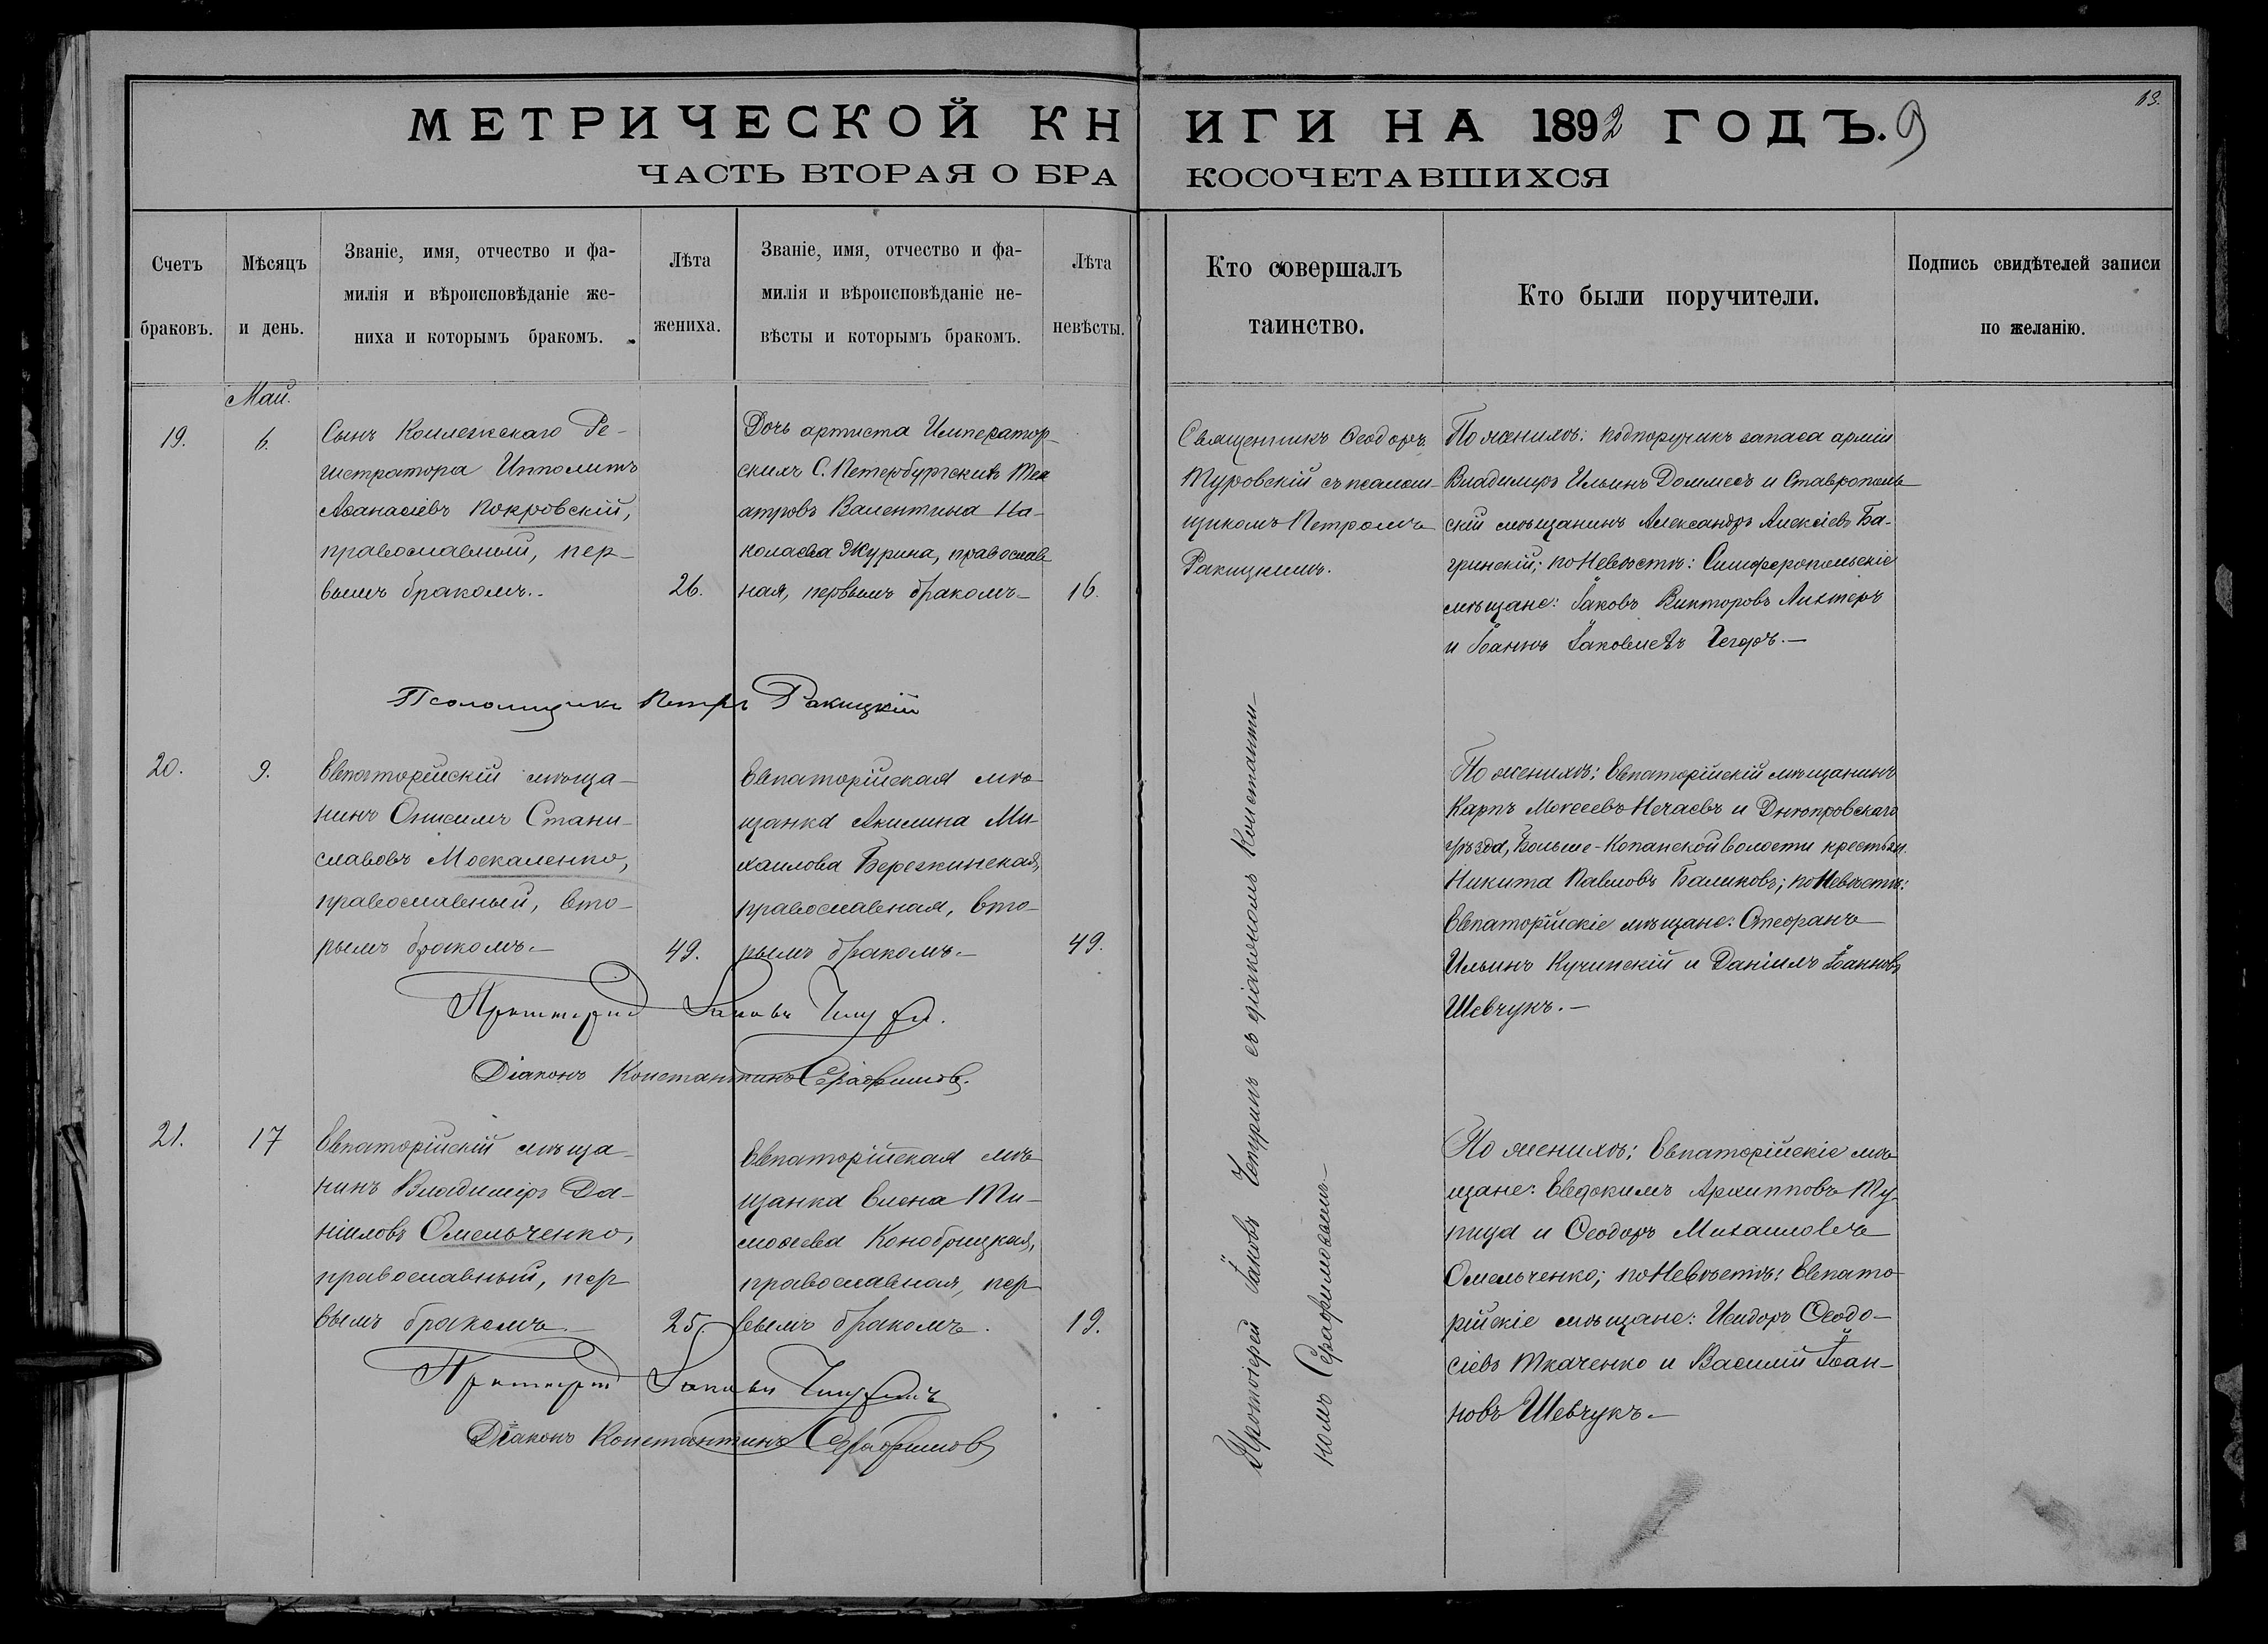 МЕТРИЧЕСКОЙ КНИГИ НА 1892 ГОДЪ. 9
ЧАСТЬ ВТОРАЯ О БРАКОСОЧЕТАВШИХСЯ
63.
Счетъ
браковъ.
Мѣсяцъ
и день.
Званіе, имя, отчество и фа-
милія и вѣроисповѣданіе же-
ниха и которымъ бракомъ.
Лѣта
жениха.
Званіе, имя, отчество и фа-
милія и вѣроисповѣданіе не-
вѣсты и которымъ бракомъ.
Лѣта
невѣсты.
Кто совершалъ
таинство.
Кто были поручители.
Подпись свидѣтелей записи
по желанію.
Май.
19.
6.
Сынъ Коллежскаго Ре-
гистратора Ипполитъ
Аѳанасіевъ Покровскій,
православный, пер-
вымъ бракомъ.
26.
Дочь артиста Император-
скихъ С. Петербургскихъ Теа
атровъ Валентина Ни-
колаева Журина, православ
ная, первымъ бракомъ
16.
Священникъ Ѳеодоръ
Туровскій съ псалом-
щикомъ Петромъ
Ракицкимъ.
По женихѣ: подпоручикъ запаса арміи
Владимиръ Ильинъ Доммесъ и Ставрополь
скій мѣщанинъ Александръ Алексіевъ Ба-
гринскій; по невѣстѣ: Симферопольскіе
мѣщане: Іаковъ Викторовъ Листеръ
и Іоаннъ Іаковлевъ
Псаломщикъ Петръ Ракицкій
20.
9.
Евпаторійскій мѣща-
нинъ Онисимъ Стани-
славовъ Москаленко,
православный, вто-
рымъ бракомъ.
49.
Евпаторійская мѣ-
щанка Акилина Ми-
хаилова Березкинская,
православная, вто-
рымъ бракомъ.
49.
По женихѣ: Евпаторійскій мѣщанинъ
Карпъ Моѵсеевъ Нечаевъ и Днѣпровскаго
уѣзда, Больше-Копанской волости крестьян.
Никита Павловъ Баликовъ; по невѣстѣ:
Евпаторійскіе мѣщане: Стефанъ
Ильинъ Кучинскій и Даніилъ Іоанновъ
Шевчукъ.
Протоіерей Іаковъ
Діаконъ Константинъ Серафимовъ.
21.
17
Евпаторійскій мѣща-
нинъ Владимiръ Да-
ніиловъ Омельченко,
православный, пер
вымъ бракомъ.
25.
Евпаторійская мѣ
щанка Елена Ти-
моѳеева Конобрицкая,
православная, пер
вымъ бракомъ.
19.
Протоіерей Іаковъ Чепуринъ съ діакономъ Константи-
номъ Серафимовымъ
По женихѣ: Евпаторійскіе мѣ
щане: Евдокимъ Архипповъ Ту-
пица и Ѳеодоръ Михаиловъ
Омельченко; по невѣстѣ: Евпато
рійскіе мѣщане: Исидоръ Ѳеодо-
сіевъ Ткаченко и Василій Іоан-
новъ Шевчукъ.
Протоіерей Іаковъ Чепуринъ
Діаконъ Константинъ Серафимовъ